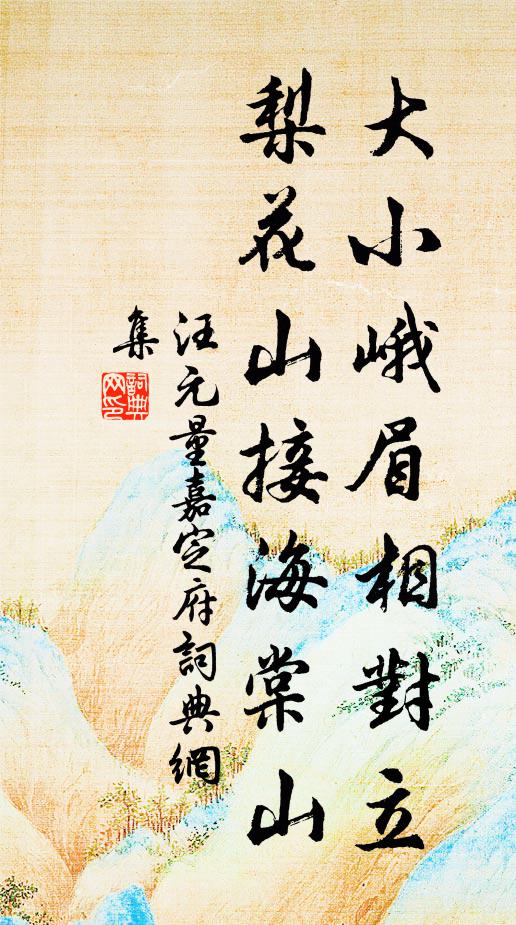 大小峨眉相對立
梨花山接海棠山
汪元量嘉定府詞典網
集
詞典
网印